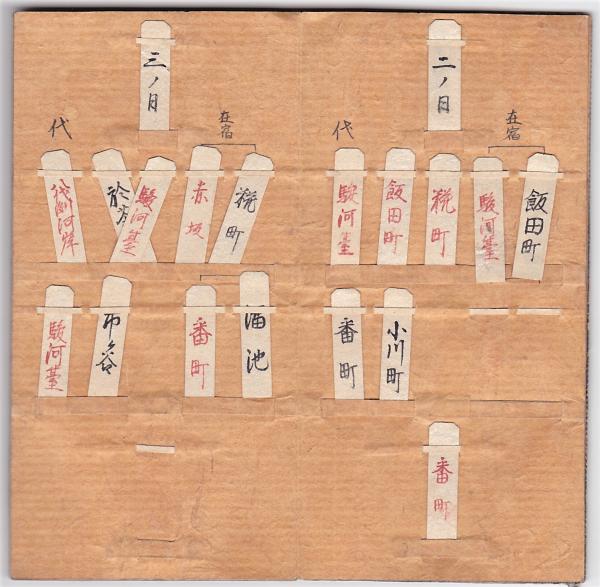 二ノ日
在宿
代
飯田町
駿河臺
糀町
飯田町
駿河臺
小川町
番町
番町
三ノ日
在宿
代
糀町
赤坂
駿河臺
代洲河岸
溜池
番町
市ヶ谷
駿河臺